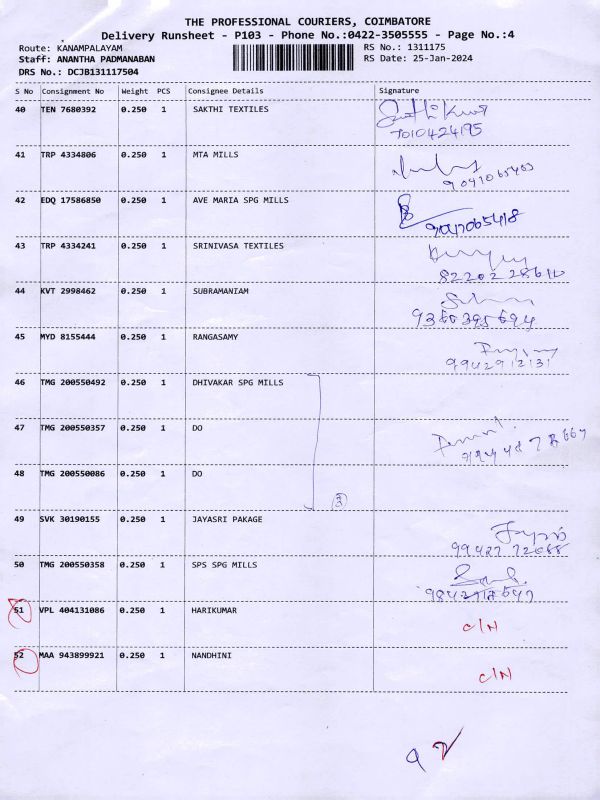 THE PROFESSIONAL COURIERS, COIMBATORE
Delivery Runsheet - P103 - Phone No.:0422-3505555 - Page No.:4
Route: KANAMPALAYAM RS No.: 1311175
Staff: ANANTHA PADMANABAN RS Date: 25-Jan-2024
DRS No.: DCJB131117504
S No Consignment No Weight PCS Consignee Details Signature
40 TEN 7680392 0.250 1 SAKTHI TEXTILES
7010424195
41 TRP 4334806 0.250 1 MTA MILLS
42 EDQ 17586850 0.250 1 AVE MARIA SPG MILLS
43 TRP 4334241 0.250 1 SRINIVASA TEXTILES
44 KVT 2998462 0.250 1 SUBRAMANIAM
9360395694
45 MYD 8155444 0.250 1 RANGASAMY
9942912131
46 TMG 200550492 0.250 1 DHIVAKAR SPG MILLS
47 TMG 200550357 0.250 1 DO
48 TMG 200550086 0.250 1 DO
3
49 SVK 30190155 0.250 1 JAYASRI PAKAGE
50 TMG 200550358 0.250 1 SPS SPG MILLS
51 VPL 404131086 0.250 1 HARIKUMAR
C/N
52 MAA 943899921 0.250 1 NANDHINI
C/N
9 2